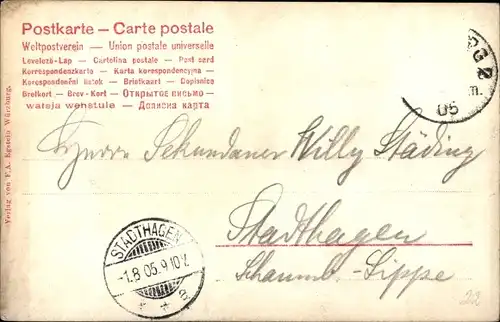 Postkarte – Carte postale
Weltpostverein — Union postale universelle
Levelezö-Lap — Cartolina postale — Post card
Korrespondenzkarte — Karta korespondencyjna —
Korespondenční lístek — Briefkaart — Dopisnice
Brefkort — Brev-Kort — Открытое письмо —
wateja wehstule — Дописна карта
G 2
m.
05
Herrn Sekundaner Willy Städing
Stadthagen
Schaumb.-Lippe
STADTHAGEN
-1.8 05.9-10V.
* * a
Verlag von F.A. Egstein Würzburg.
22